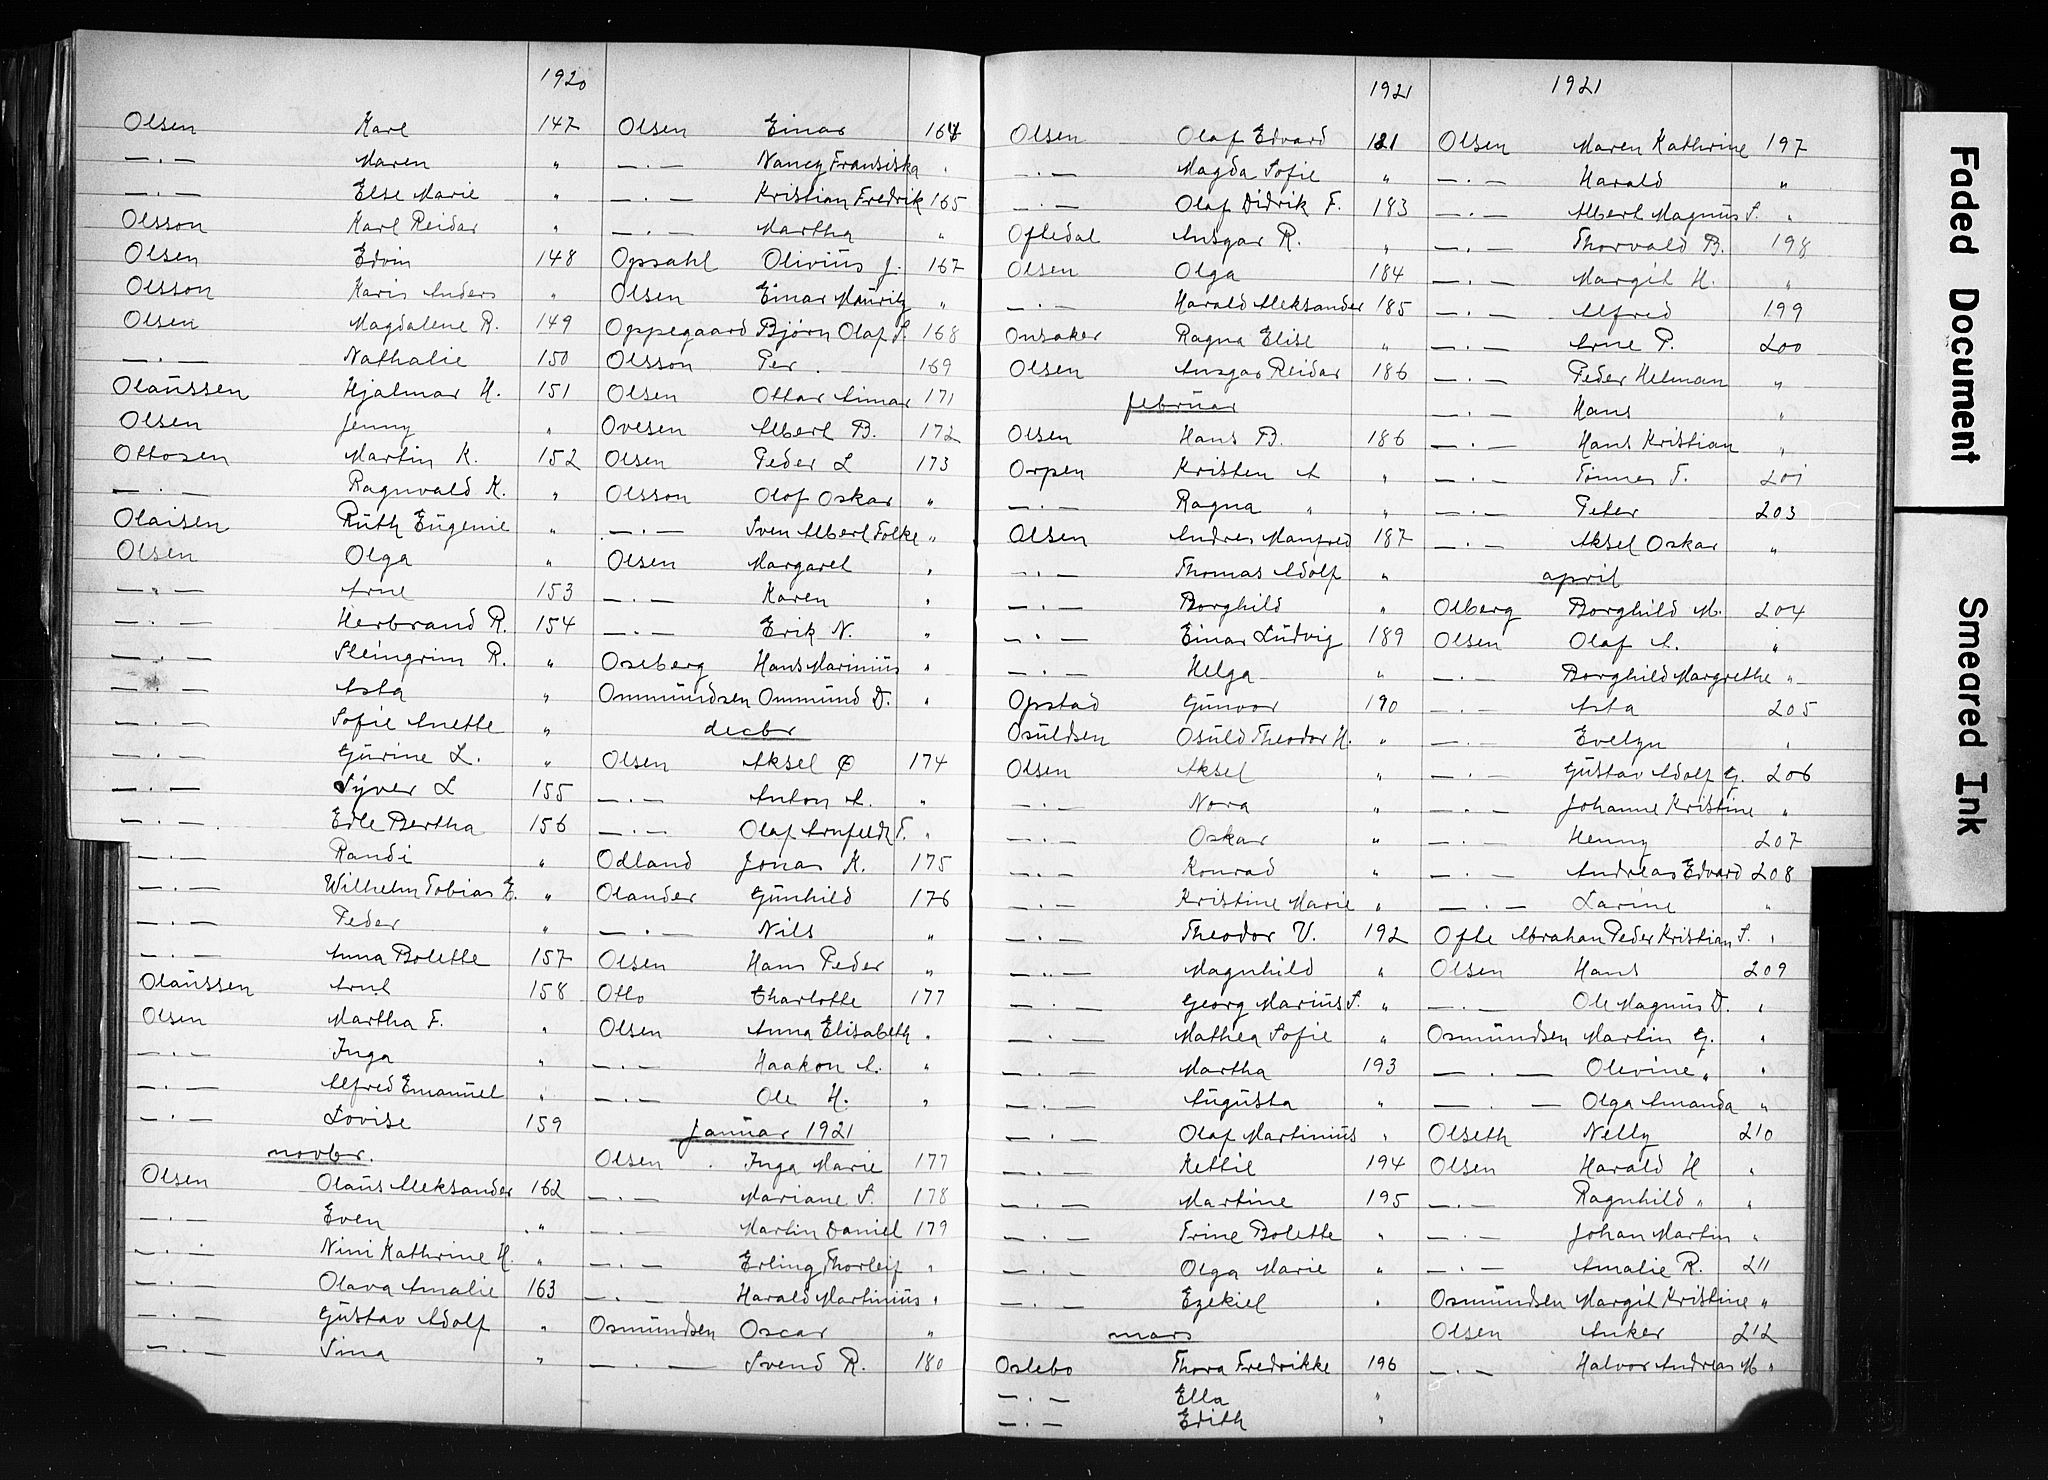 1920
Olsen Karl 147
—·— Maren "
—·— Else Marie "
Olsson Karl Reidar "
Olsen Edvin 148
Olsson Karis Anders "
Olsen Magdalene R. 149
—·— Nathalie 150
Olaüssen Hjalmar H. 151
Olsen Jenny "
Ottosen Martin K. 152
—·— Ragnvald K. "
Olaisen Rüth Eügenie "
Olsen Olga "
—·— Arne 153
—·— Herbrand R. 154
—·— Steingrim R. "
—·— Asta "
—·— Sofie Anette "
—·— Gürine L. "
—·— Syver L 155
—·— Edle Bertha 156
—·— Randi "
—·— Wilhelm Tobias E. "
—·— Peder "
—·— Anna Bolette 157
Olaüssen Arne 158
Olsen Martha F. "
—·— Inga "
—·— Alfred Emanüel "
—·— Lovise 159
novbr.
Olsen Olaüs Aleksander 162
—·— Even "
—·— Nini Kathrine H. "
—·— Olava Amalie 163
—·— Güstav Adolf "
—·— Sina "
Olsen Einar 164
—·— Nancy Fransiska "
—·— Kristian Fredrik 165
—·— Martha "
Opsahl Oliviüs J. 167
Olsen Einar Maüritz "
Oppegaard Bjørn Olaf S. 168
Olsson Per 169
Olsen Ottar Aimar 171
Ovesen Albert B. 172
Olsen Peder L 173
Olsson Olof Oskar "
—·— Sven Albert Folke "
Olsen Margaret "
—·— Karen "
—·— Erik N. "
Oseberg Hans Mariniüs "
Ommündsen Ommünd D. "
decbr
Olsen Aksel Ø 174
—·— Anton A. "
—·— Olaf Arnfeldt T. "
Odland Jonas K. 175
Olander Günhild 176
—·— Nils "
Olsen Hans Peder "
Otto Charlotte 177
Olsen Anna Elisabeth "
—·— Haakon A. "
—·— Ole H. "
Janüar 1921
Olsen Inga Marie 177
—·— Mariane S. 178
—·— Martin Daniel 179
—·— Erling Thorleif "
—·— Harald Martiniüs "
Osmündsen Oscar "
—·— Svend R. 180
1921
Olsen Olaf Edvard 181
—·— Magda Sofie "
—·— Olaf Didrik F. 183
Oftedal Ansgar R. "
Olsen Olga 184
—·— Harald Aleksander 185
Onsaker Ragna Elise "
Olsen Ansgar Reidar 186
februar
Olsen Hans B. 186
Orpen Kristen A "
—·— Ragna " "
Olsen Andres Manfred 187
—·— Thomas Adolf "
—·— Borghild "
—·— Einar Lüdvig 189
—·— Helga "
Opstad Günvor 190
Osüldsen Osüld Theodor H. "
Olsen Aksel "
—·— Nora "
—·— Oskar "
—·— Konrad "
—·— Kristine Marie "
—·— Theodor V. 192
—·— Magnhild "
—·— Georg Mariüs S. "
—·— Mathea Sofie "
—·— Martha 193
—·— Aügüsta "
—·— Olaf Martiniüs "
—·— Kettil 194
—·— Martine 195
—·— Trine Bolette "
—·— Olga Marie "
—·— Ezekiel "
mars
Oslebo Thora Fredrikke 196
—·— Ella "
—·— Edith "
1921
Olsen Maren Kathrine 197
—·— Harald "
—·— Albert Magnüs S. "
—·— Thorvald B. 198
—·— Margit H. "
—·— Alfred 199
—·— Arne P. 200
—·— Peder Helman "
—·— Hans "
—·— Hans Kristian "
—·— Tønnes T. 201
—·— Peter 203
—·— Aksel Oskar "
april
Olberg Borghild M. 204
Olsen Olaf A. "
—·— Borghild Margrethe "
—·— Asta 205
—·— Evelyn "
—·— Güstav Adolf G. 206
—·— Johanne Kristine "
—·— Henny 207
—·— Andreas Edvard 208
—·— Larine "
Ofte Abraham Peder Kristian S. "
Olsen Hans 209
—·— Ole Magnüs D. "
Osmündsen Martin G. "
—·— Olevine " "
—·— Olga Amanda "
Olseth Nelly 210
Olsen Harald H "
—·— Ragnhild " "
—·— Johan Martin "
—·— Amalie R. 211
Osmündsen Margit Kristine "
Olsen Anker 212
—·— Halvor Andreas M "
Faded Document
Smeared Ink